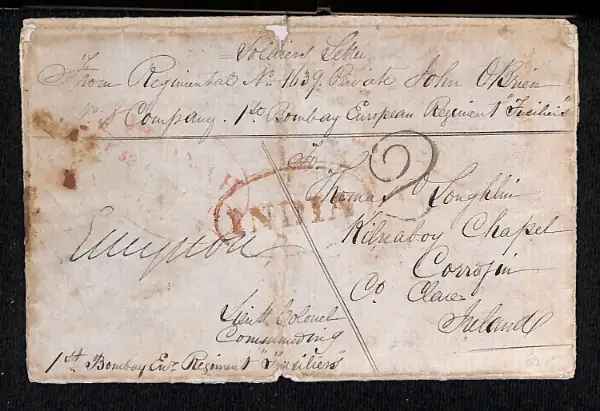 Soldiers Letter
From Regimental No 1639. Private John OBrien
No 8 Company. 1st Bombay European Regiment "Fusiliers"
To
Thomas Loughlin
INDIA
Kilnaboy Chapel
Corrofin
Co Clare
Ireland
2
Lieutt Colonel
Commanding
1st Bombay Eun Regiment "Fusiliers"